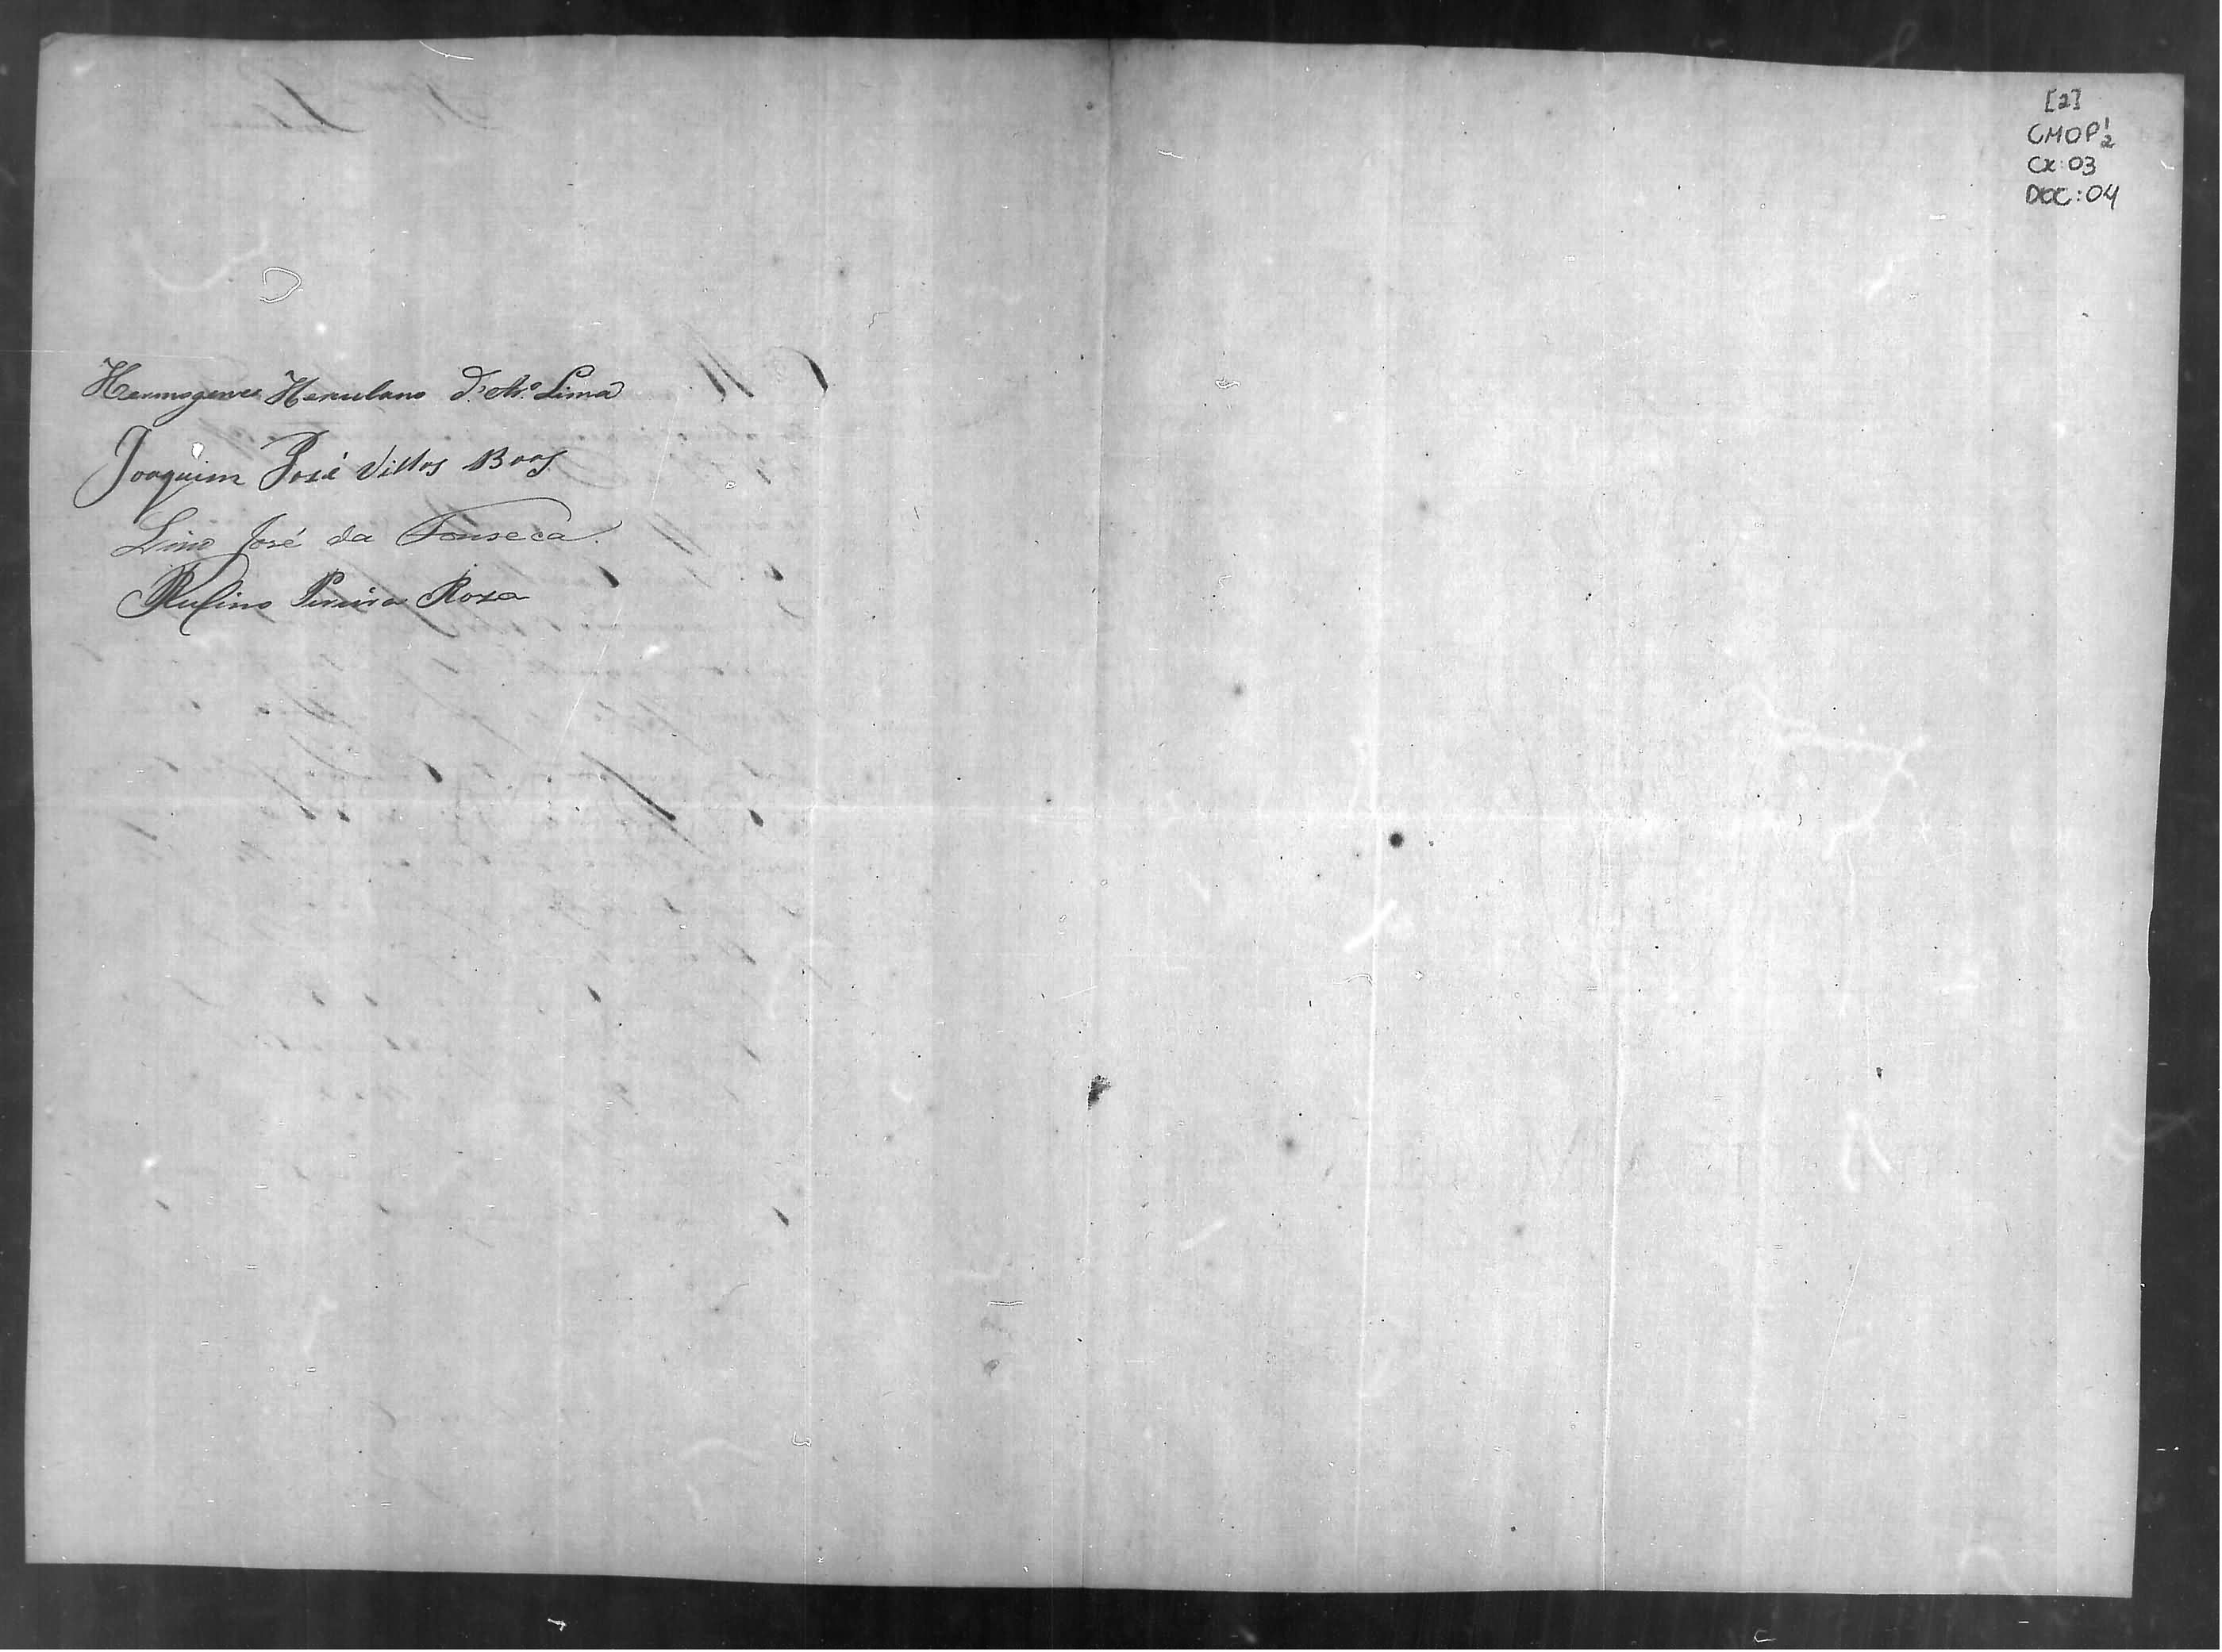 Hermogenes Herculano d'Ar.º Lima
Joaquim José Villas Boas
Lino José da Fonseca.
Rufino Pereira Rosa
[2]
CMOP 1/2
CX: 03
DOC: 04